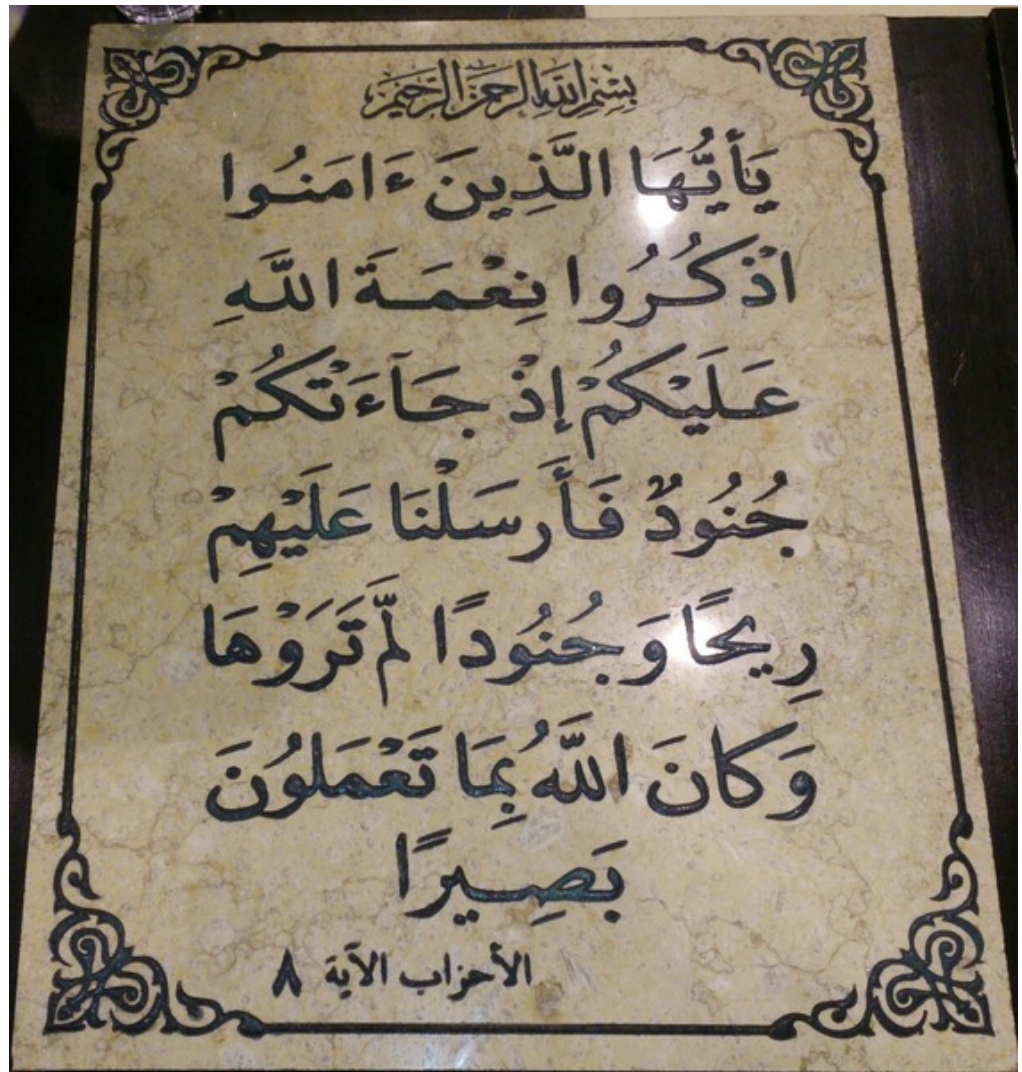 بِسْمِ اللَّهِ الرَّحْمَنِ الرَّحِيمِ
يَأَيُّهَا الَّذِينَ ءَامَنُوا
اذْكُرُوا نِعْمَةَ اللَّهِ
عَلَيْكُمْ إِذْ جَآءَتْكُمْ
جُنُودٌ فَأَرْسَلْنَا عَلَيْهِمْ
رِيحًا وَجُنُودًا لَّمْ تَرَوْهَا
وَكَانَ اللَّهُ بِمَا تَعْمَلُونَ
بَصِيرًا
الأحزاب الآية ٨